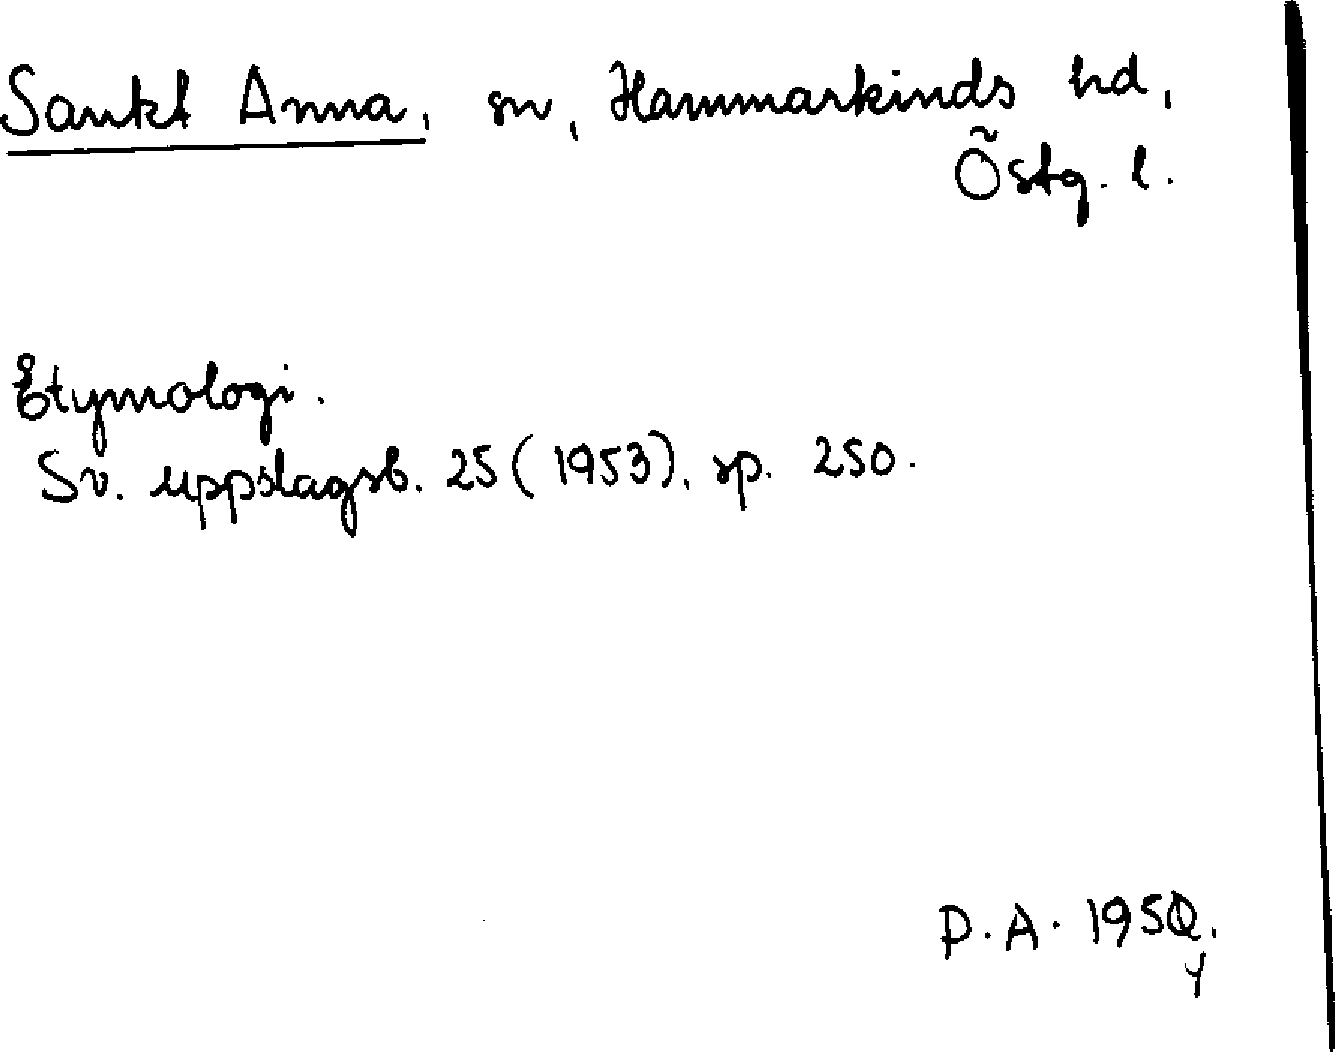 Sankt Anna, sn, Hammarkinds hd,
Östg. l.
Etymologi.
Sv. uppslagsb. 25 (1953), sp. 250.
P. A. 195
4